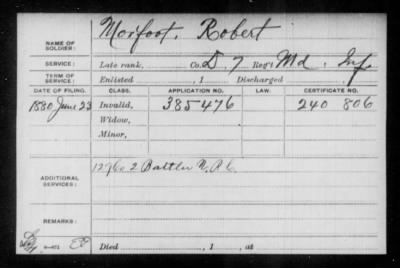 NAME OF SOLDIER: Moifoot, Robert
SERVICE: Late rank, Co. D 7 Reg't Md. Inf.
TERM OF SERVICE: Enlisted , 1 Discharged , 1
DATE OF FILING. CLASS. APPLICATION NO. LAW. CERTIFICATE NO.
1880 June 23 Invalid, 385476 240 806
Widow,
Minor,
ADDITIONAL SERVICES: 2 Battln V.R.C.
REMARKS:
Died , 1 , at